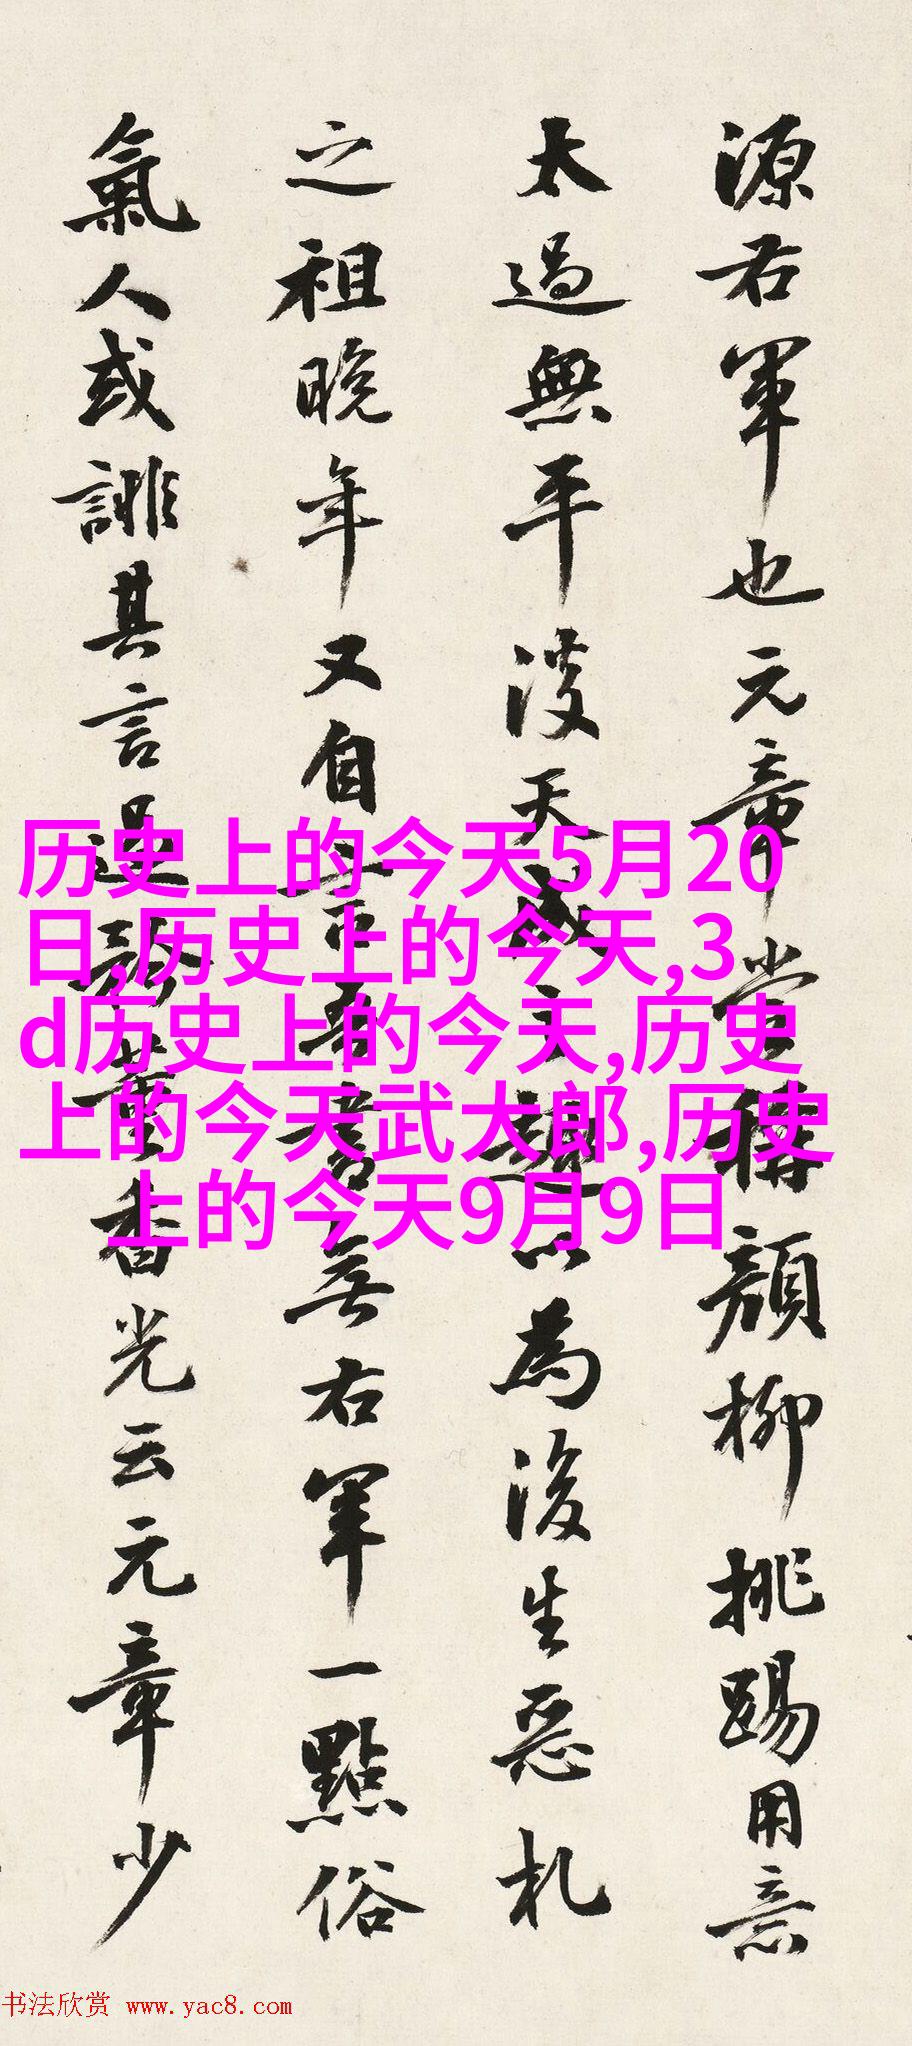 源右軍也元章嘗稱顏柳挑踢用意
太過無平淡天成之趣以為後生惡札
之祖晚年又自言吾書無右軍一點俗
氣人或誹其言過誇董香光云元章少
历史上的今天5月20
日,历史上的今天,3
d历史上的今天,历史
上的今天武大郎,历史
上的今天9月9日
书法欣赏 www.yac8.com